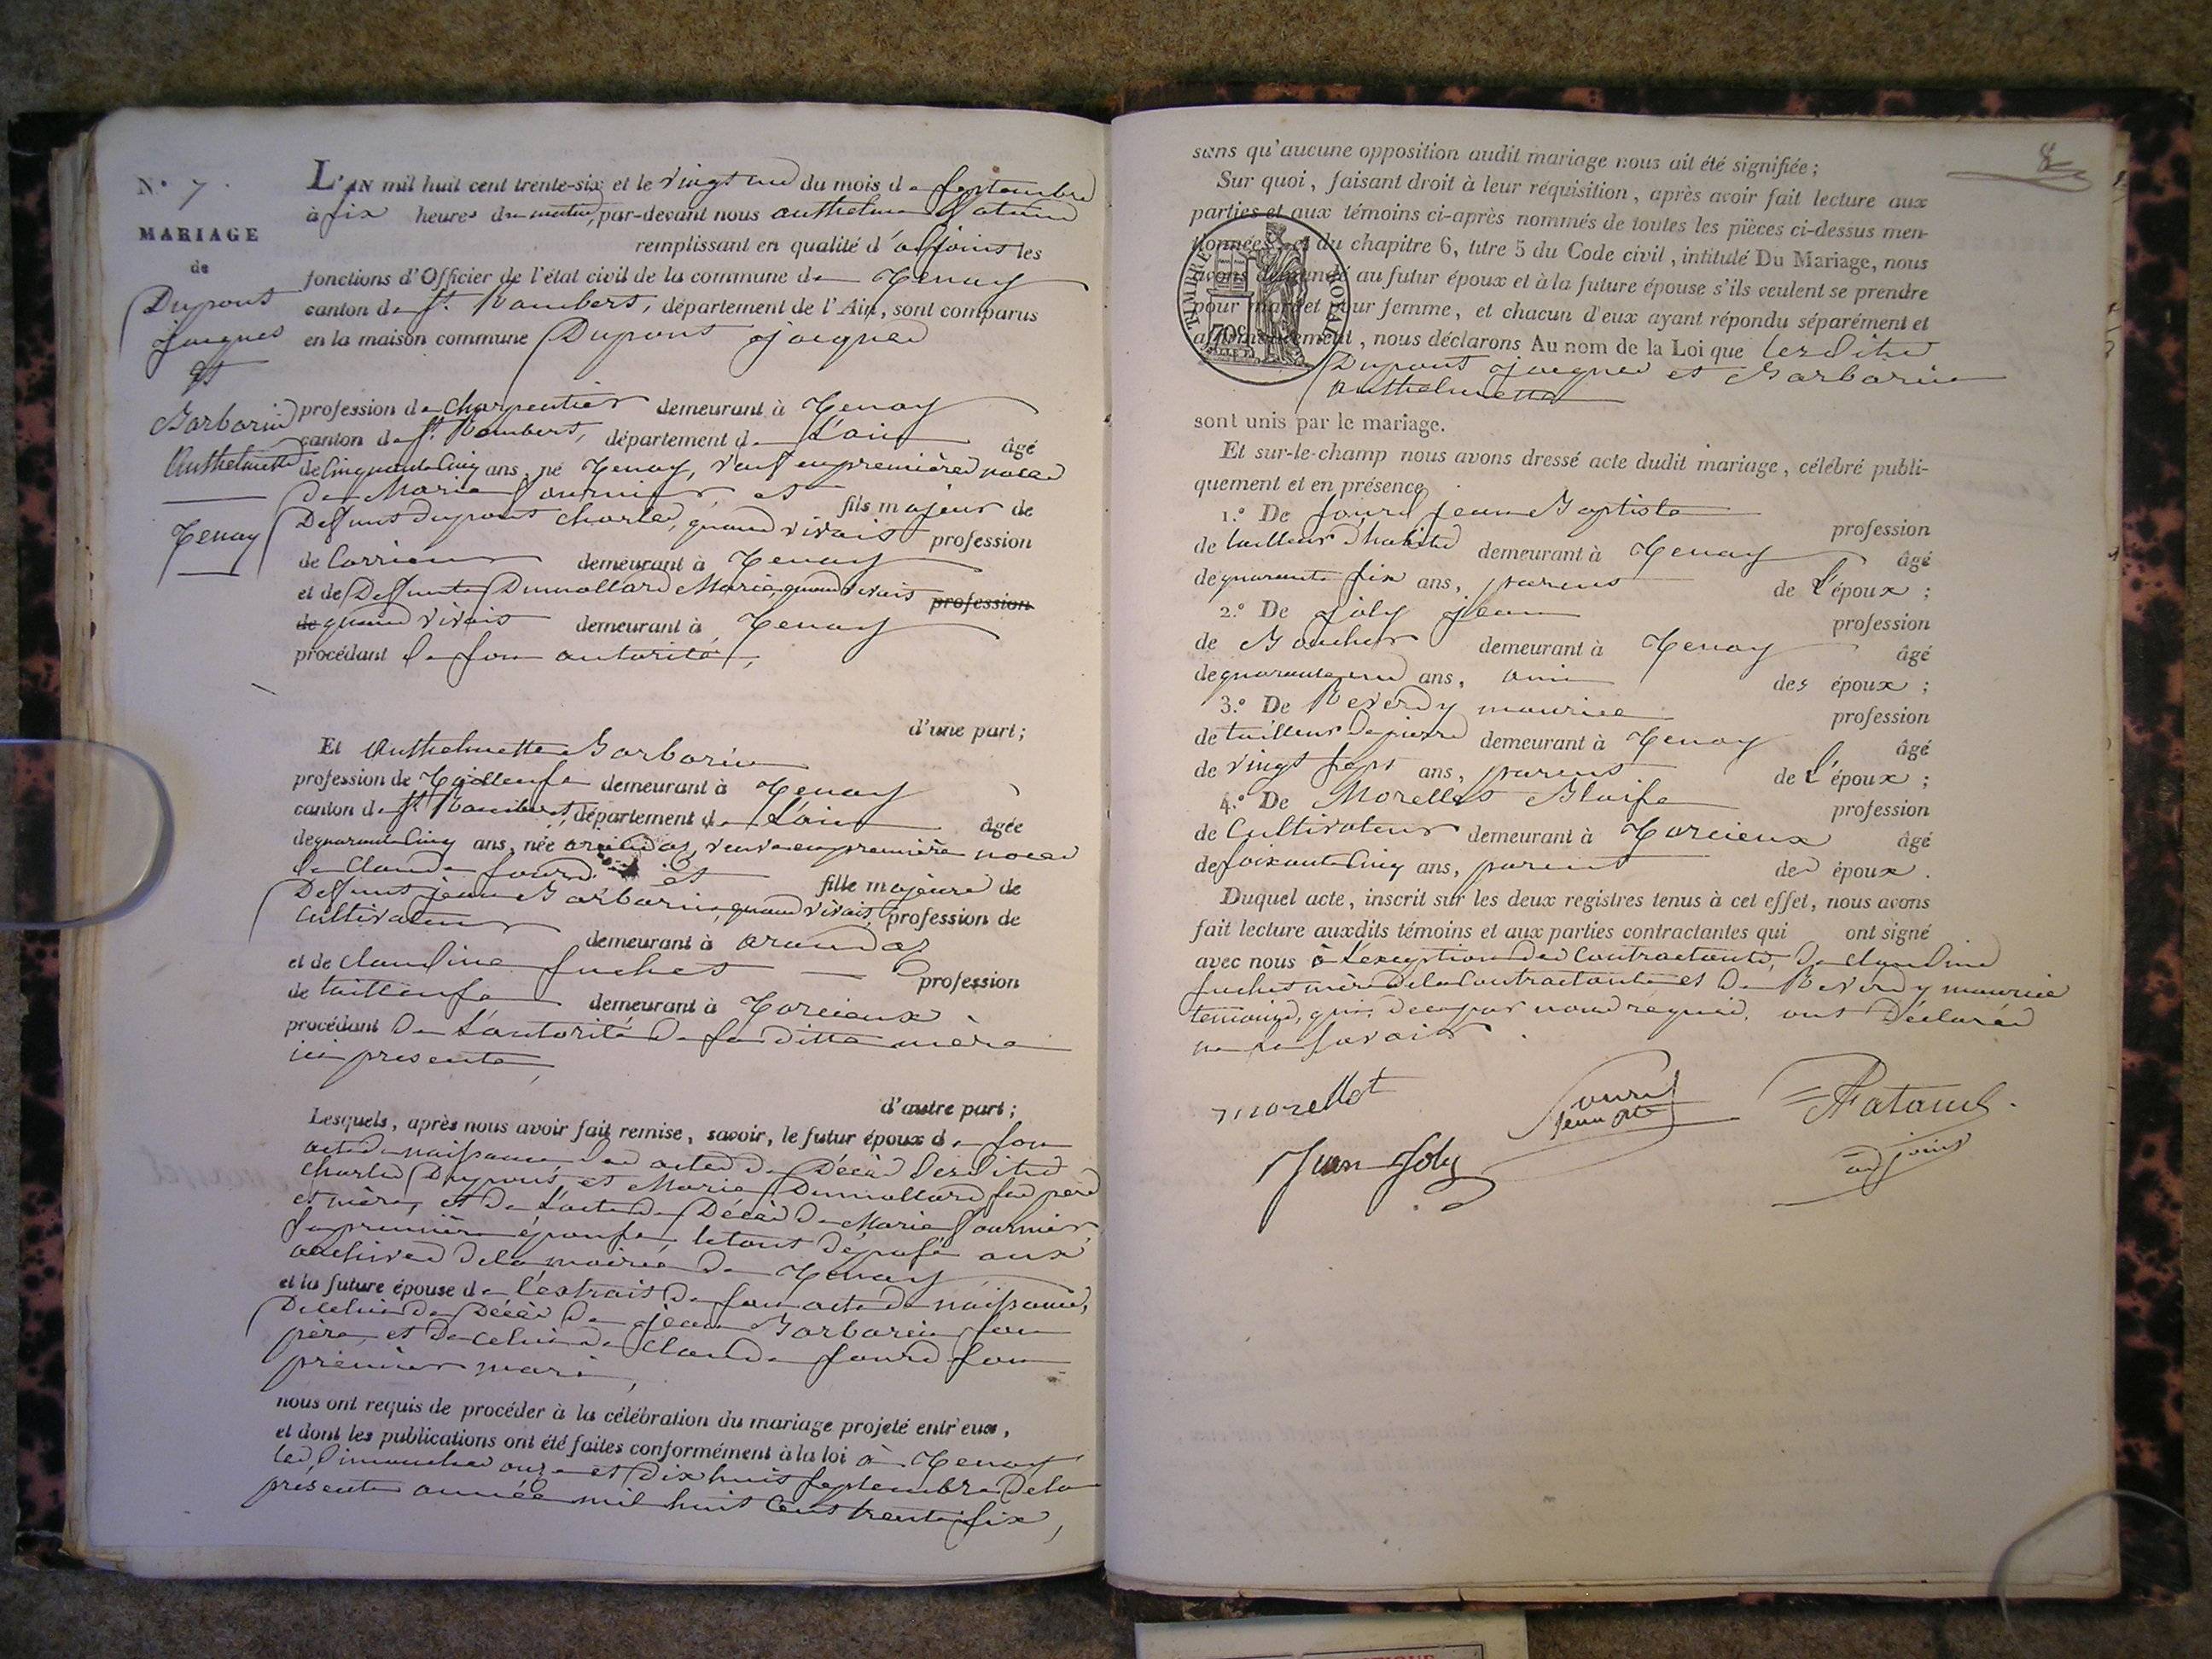 N.° 7.
MARIAGE
de
Dupont
jacques
et
Barbarin
Anthelmette
Tenay
L'AN mil huit cent trente-six et le vingt un du mois de septembre
à six heures du matin, par-devant nous anthelme
remplissant en qualité d'adjoint les
fonctions d'Officier de l'état civil de la commune de Tenay
canton de St. Rambert, département de l'Ain, sont comparus
en la maison commune Dupont jacques
profession de charpentier demeurant à Tenay
canton de St. Rambert, département de L'ain âgé
de Cinquante Cinq ans, né Tenay, veuf en premières noces
de Marie fournier et fils majeur de
Deffunt dupont charles, quand vivait profession
de demeurant à Tenay
et de Deffunte Dumollard Marie, quand vivait profession
de quand vivait demeurant à Tenay
procédant de son autorité,
d'une part;
Et Anthelmette Barbarin
profession de Tailleuse demeurant à Tenay
canton de St. Rambert, département de L'ain âgée
de quarante Cinq ans, née arandas, veuve en première noces
de Claude fourd et fille majeure de
Deffunt jean Barbarin, quand vivait, profession de
Cultivateur demeurant à arandas
et de claudine fuchet profession
de tailleuse demeurant à Torcieux
procédant de L'autorité de sa ditte mère
ici presente,
d'autre part;
Lesquels, après nous avoir fait remise, savoir, le futur époux de son
acte de naissance des actes de Décès desdits
Charles Dupont, et Marie Dumollard ses père
et mère, et de L'acte de Décès de Marie fournier,
sa première épouse, le tout déposé aux
archives de la mairie de Tenay
et la future épouse de l'extrait de son acte de naissance,
De celui de Décès de jean Barbarin son
père, et de celui de Claude fourd son
premier mari,
nous ont requis de procéder à la célébration du mariage projeté entr'eux,
et dont les publications ont été faites conformément à la loi à Tenay
les Dimanches onze et Dix huit septembre de la
présente année mil huit Cent trente six,
8
sans qu'aucune opposition audit mariage nous ait été signifiée;
Sur quoi, faisant droit à leur réquisition, après avoir fait lecture aux
parties et aux témoins ci-après nommés de toutes les pièces ci-dessus men-
tionnées et du chapitre 6, titre 5 du Code civil, intitulé Du Mariage, nous
avons demandé au futur époux et à la future épouse s'ils veulent se prendre
pour mari et pour femme, et chacun d'eux ayant répondu séparément et
affirmativement, nous déclarons Au nom de la Loi que lesdits
Dupont jacques et Barbarin
Anthelmette
TIMBRE ROYAL
70c
sont unis par le mariage.
Et sur-le-champ nous avons dressé acte dudit mariage, célébré publi-
quement et en présence
1.° De fourd jean Baptiste profession
de tailleur d'habits demeurant à Tenay âgé
de quarante six ans, parent de l'époux;
2.° De joly jean profession
de Boucher demeurant à Tenay âgé
de quarante un ans, ami des époux;
3.° De Reverdy maurice profession
de tailleur de pierre demeurant à Tenay âgé
de vingt sept ans, parent de l'époux;
4.° De Morellet Blaise profession
de Cultivateur demeurant à Torcieux âgé
de soixante Cinq ans, parent des époux.
Duquel acte, inscrit sur les deux registres tenus à cet effet, nous avons
fait lecture auxdits témoins et aux parties contractantes qui ont signé
avec nous à L'exception des Contractants, de claudine
fuchet mère de la Contractante et De Reverdy maurice
témoins, qui de ce par nous requis, ont Déclarés
ne le savoir.
morellot
fourd
jean bte
Jean Joly
adjoint